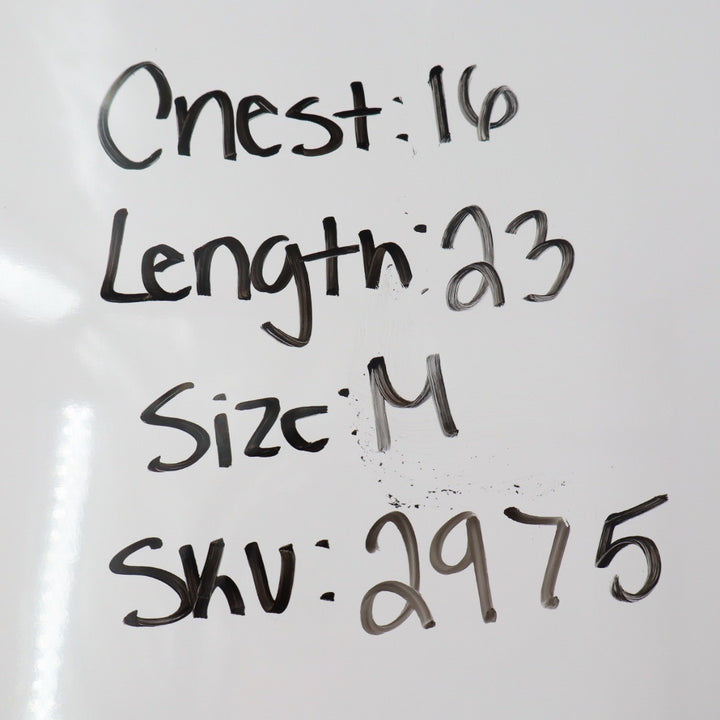 Chest: 16
Length: 23
Size: M
SKU: 2975